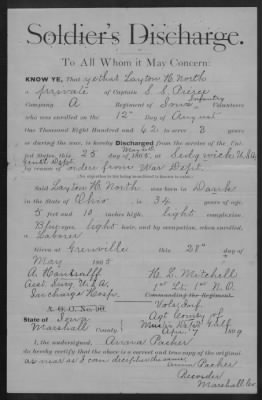 Soldier's Discharge.
To All Whom it May Concern:
KNOW YE, That ye that Layton H. North
a private of Captain S. S. Pierce
Company A Regiment of Iowa Infantry Volunteers
who was enrolled on the 12" day of August
One Thousand Eight Hundred and 62 to serve 3 years
or during the war, is hereby Discharged from the service of the Uni-
ted States, this 25 day of 1865, at Sedgwick U.S.A.
Genl Hospt
by reason of orders from War Dept.
Said Layton H. North was born in
in the State of Ohio is 34 years of age,
5 feet and 10 inches high, light complexion,
Blue eyes, light hair, and by occupation, when enrolled,
a Laborer
Given at Greenville this 28" day of
May 1865
A. H. L. Mitchell
Asst. Surg. U.S.A. 1st Lt. 1st N.O.
In charge Hosp. Commanding the Regiment
Vols. Inf.
A. G. O. No. 99.
State of Iowa
Marshall County
Apr 7 1889
I, the undersigned, Packer
do hereby certify that the above is a correct and true copy of the original
as near as I can decipher the same
Packer
Recorder
Marshall Co.